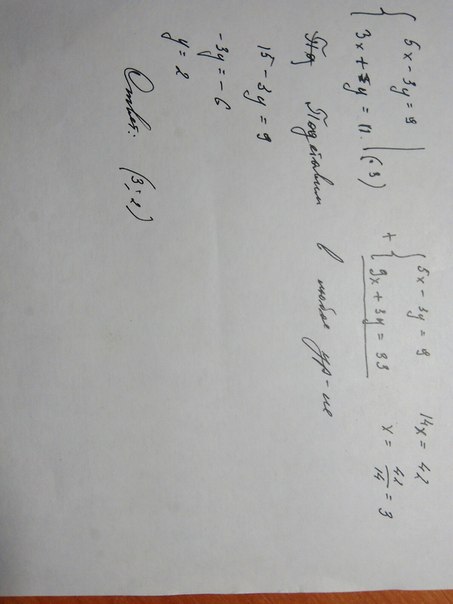 { 5x - 3y = 9
3x + y = 11. | (·3)
+ { 5x - 3y = 9
9x + 3y = 33
14x = 42
x = 42/14 = 3
Подставим в любое ур-ие
15 - 3y = 9
-3y = -6
y = 2
Ответ: (3; 2)